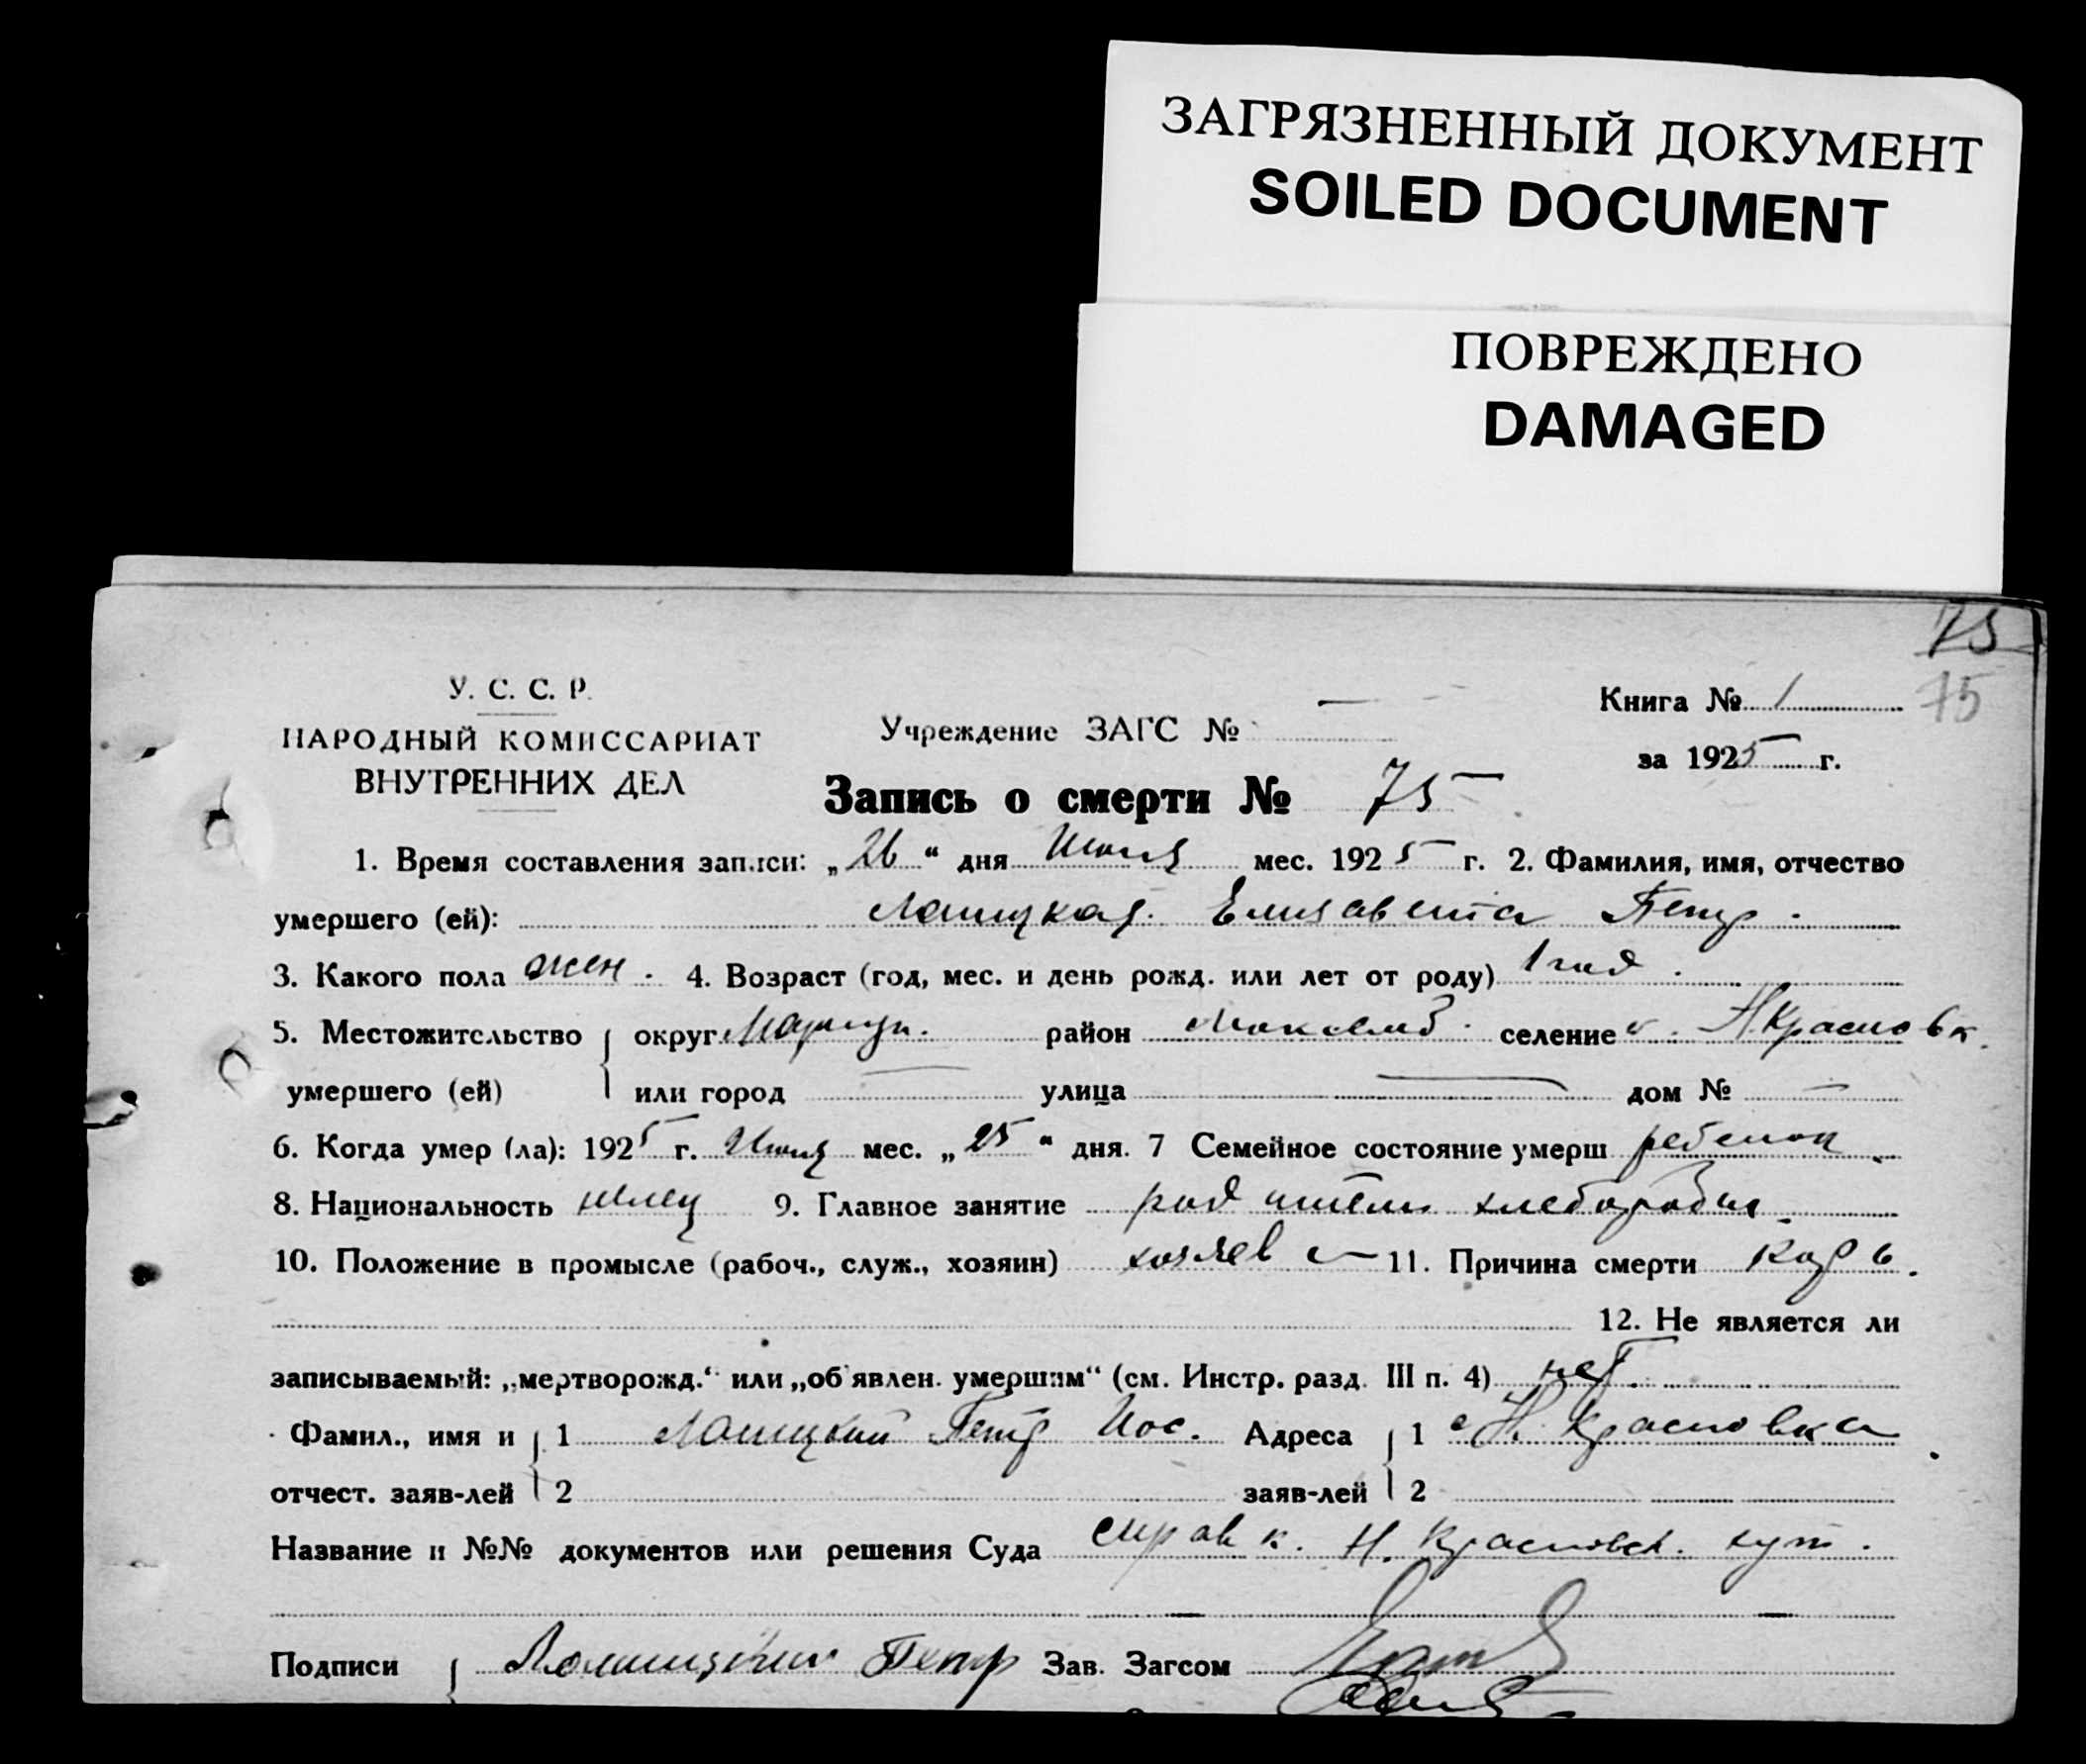 ЗАГРЯЗНЕННЫЙ ДОКУМЕНТ
SOILED DOCUMENT
ПОВРЕЖДЕНО
DAMAGED
75
75
У. С. С. Р.
НАРОДНЫЙ КОМИССАРИАТ
ВНУТРЕННИХ ДЕЛ
Учреждение ЗАГС № —
Книга № 1
за 1925 г.
Запись о смерти № 75
1. Время составления записи: „26“ дня мес. 1925 г. 2. Фамилия, имя, отчество
умершего (ей): Елизавета Петр.
3. Какого пола жен. 4. Возраст (год, мес. и день рожд. или лет от роду) 1 год.
5. Местожительство округ Мариуп. район селение Н. Красновк.
умершего (ей) или город — улица — дом № —
6. Когда умер (ла): 1925 г. мес. „25“ дня. 7 Семейное состояние умерш ребенок.
8. Национальность немец 9. Главное занятие родители хлеборобы.
10. Положение в промысле (рабоч., служ., хозяин) хозяев 11. Причина смерти Корь.
12. Не является ли
записываемый: „мертворожд.“ или „об'явлен. умершим“ (см. Инстр. разд. III п. 4) нет.
Фамил., имя и 1 Петр Иос. Адреса 1 Н. Красновка
отчест. заяв-лей 2 заяв-лей 2
Название и №№ документов или решения Суда справк. Н. Красновск. хут.
Подписи Петр Зав. Загсом